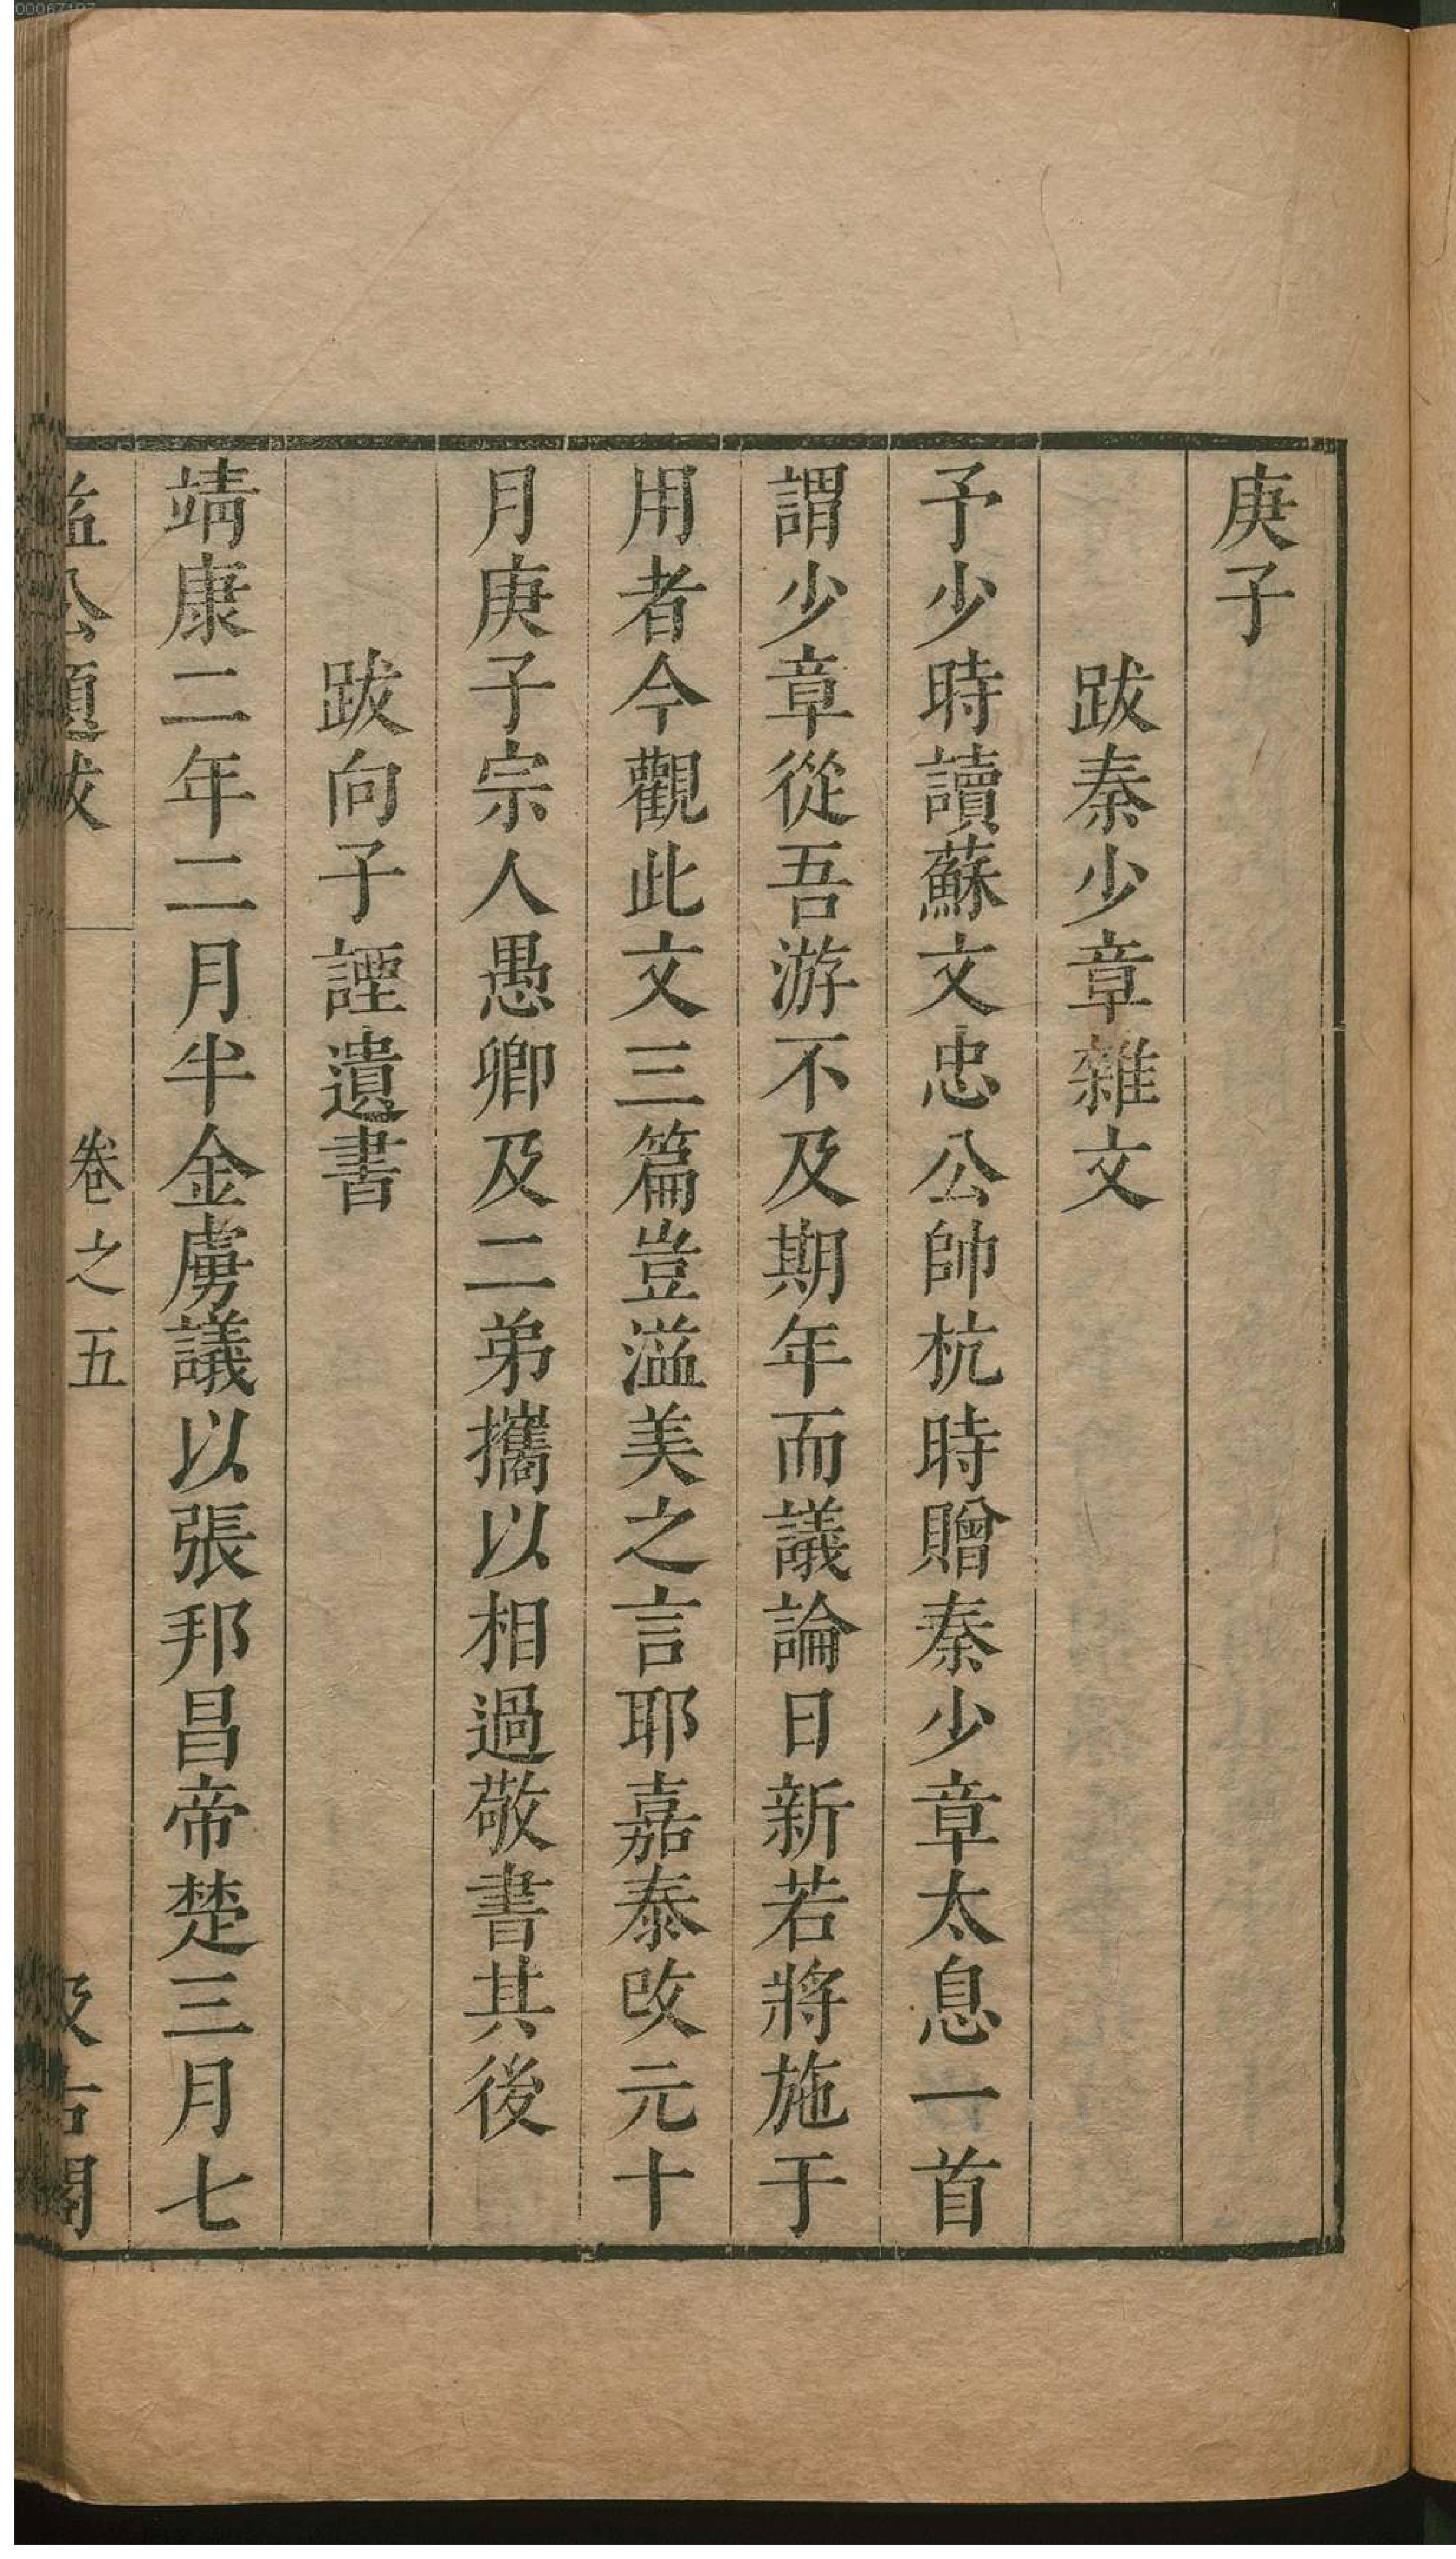 庚子
跋秦少章雜文
予少時讀蘇文忠公帥杭時贈秦少章太息一首
謂少章從吾游不及期年而議論日新若將施于
用者今觀此文三篇豈溢美之言耶嘉泰改元十
月庚子宗人愚卿及二弟攜以相過敬書其後
跋向子諲遺書
靖康二年二月半金虜議以張邦昌帝楚三月七
益公題跋 卷之五 汲古閣